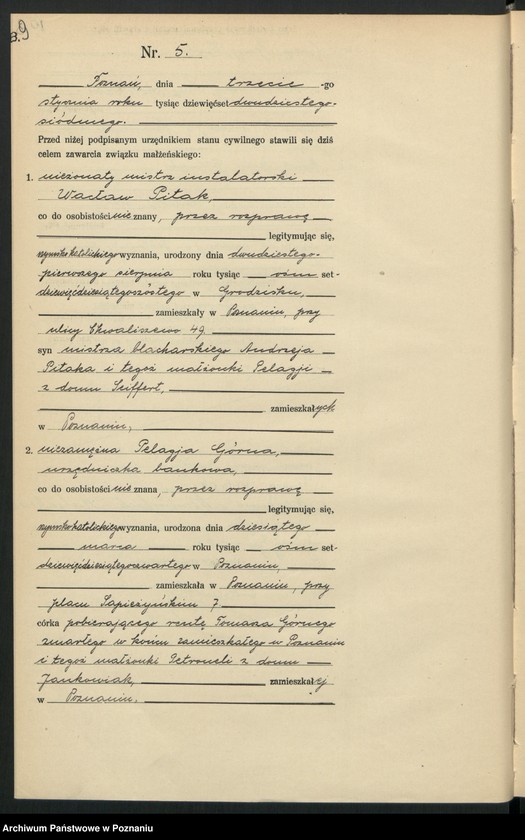 B. 9
Nr. 5.
Poznań, dnia trzecie -go
stycznia roku tysiąc dziewięćset dwudziestego-
siódmego.
Przed niżej podpisanym urzędnikiem stanu cywilnego stawili się dziś
celem zawarcia związku małżeńskiego:
1. nieżonaty mistrz instalatorski
Wacław Pitak,
co do osobistości nie znany, przez rozprawę
legitymując się,
rzymsko katolickiego wyznania, urodzony dnia dwudziestego-
pierwszego sierpnia roku tysiąc ośm set-
dziewięćdziesiątego szóstego w Grodzisku,
zamieszkały w Poznaniu, przy
ulicy Chwaliszewo 49
syn mistrza blacharskiego Andrzeja
Pitaka i tegoż małżonki Pelagji
z domu Seiffert,
zamieszkałych
w Poznaniu,
2. niezamężna Pelagja Górna,
urzędniczka bankowa,
co do osobistości nie znana, przez rozprawę
legitymując się,
rzymsko katolickiego wyznania, urodzona dnia dziesiątego
marca roku tysiąc ośm set-
dziewięćdziesiątego czwartego w Poznaniu,
zamieszkała w Poznaniu, przy
placu Sapieżyńskim 7
córka pobierającego rentę Tomasza Górnego
zmarłego w końcu zamieszkałego w Poznaniu
i tegoż małżonki Petroneli z domu
Jankowiak, zamieszkałej
w Poznaniu.
Archiwum Państwowe w Poznaniu